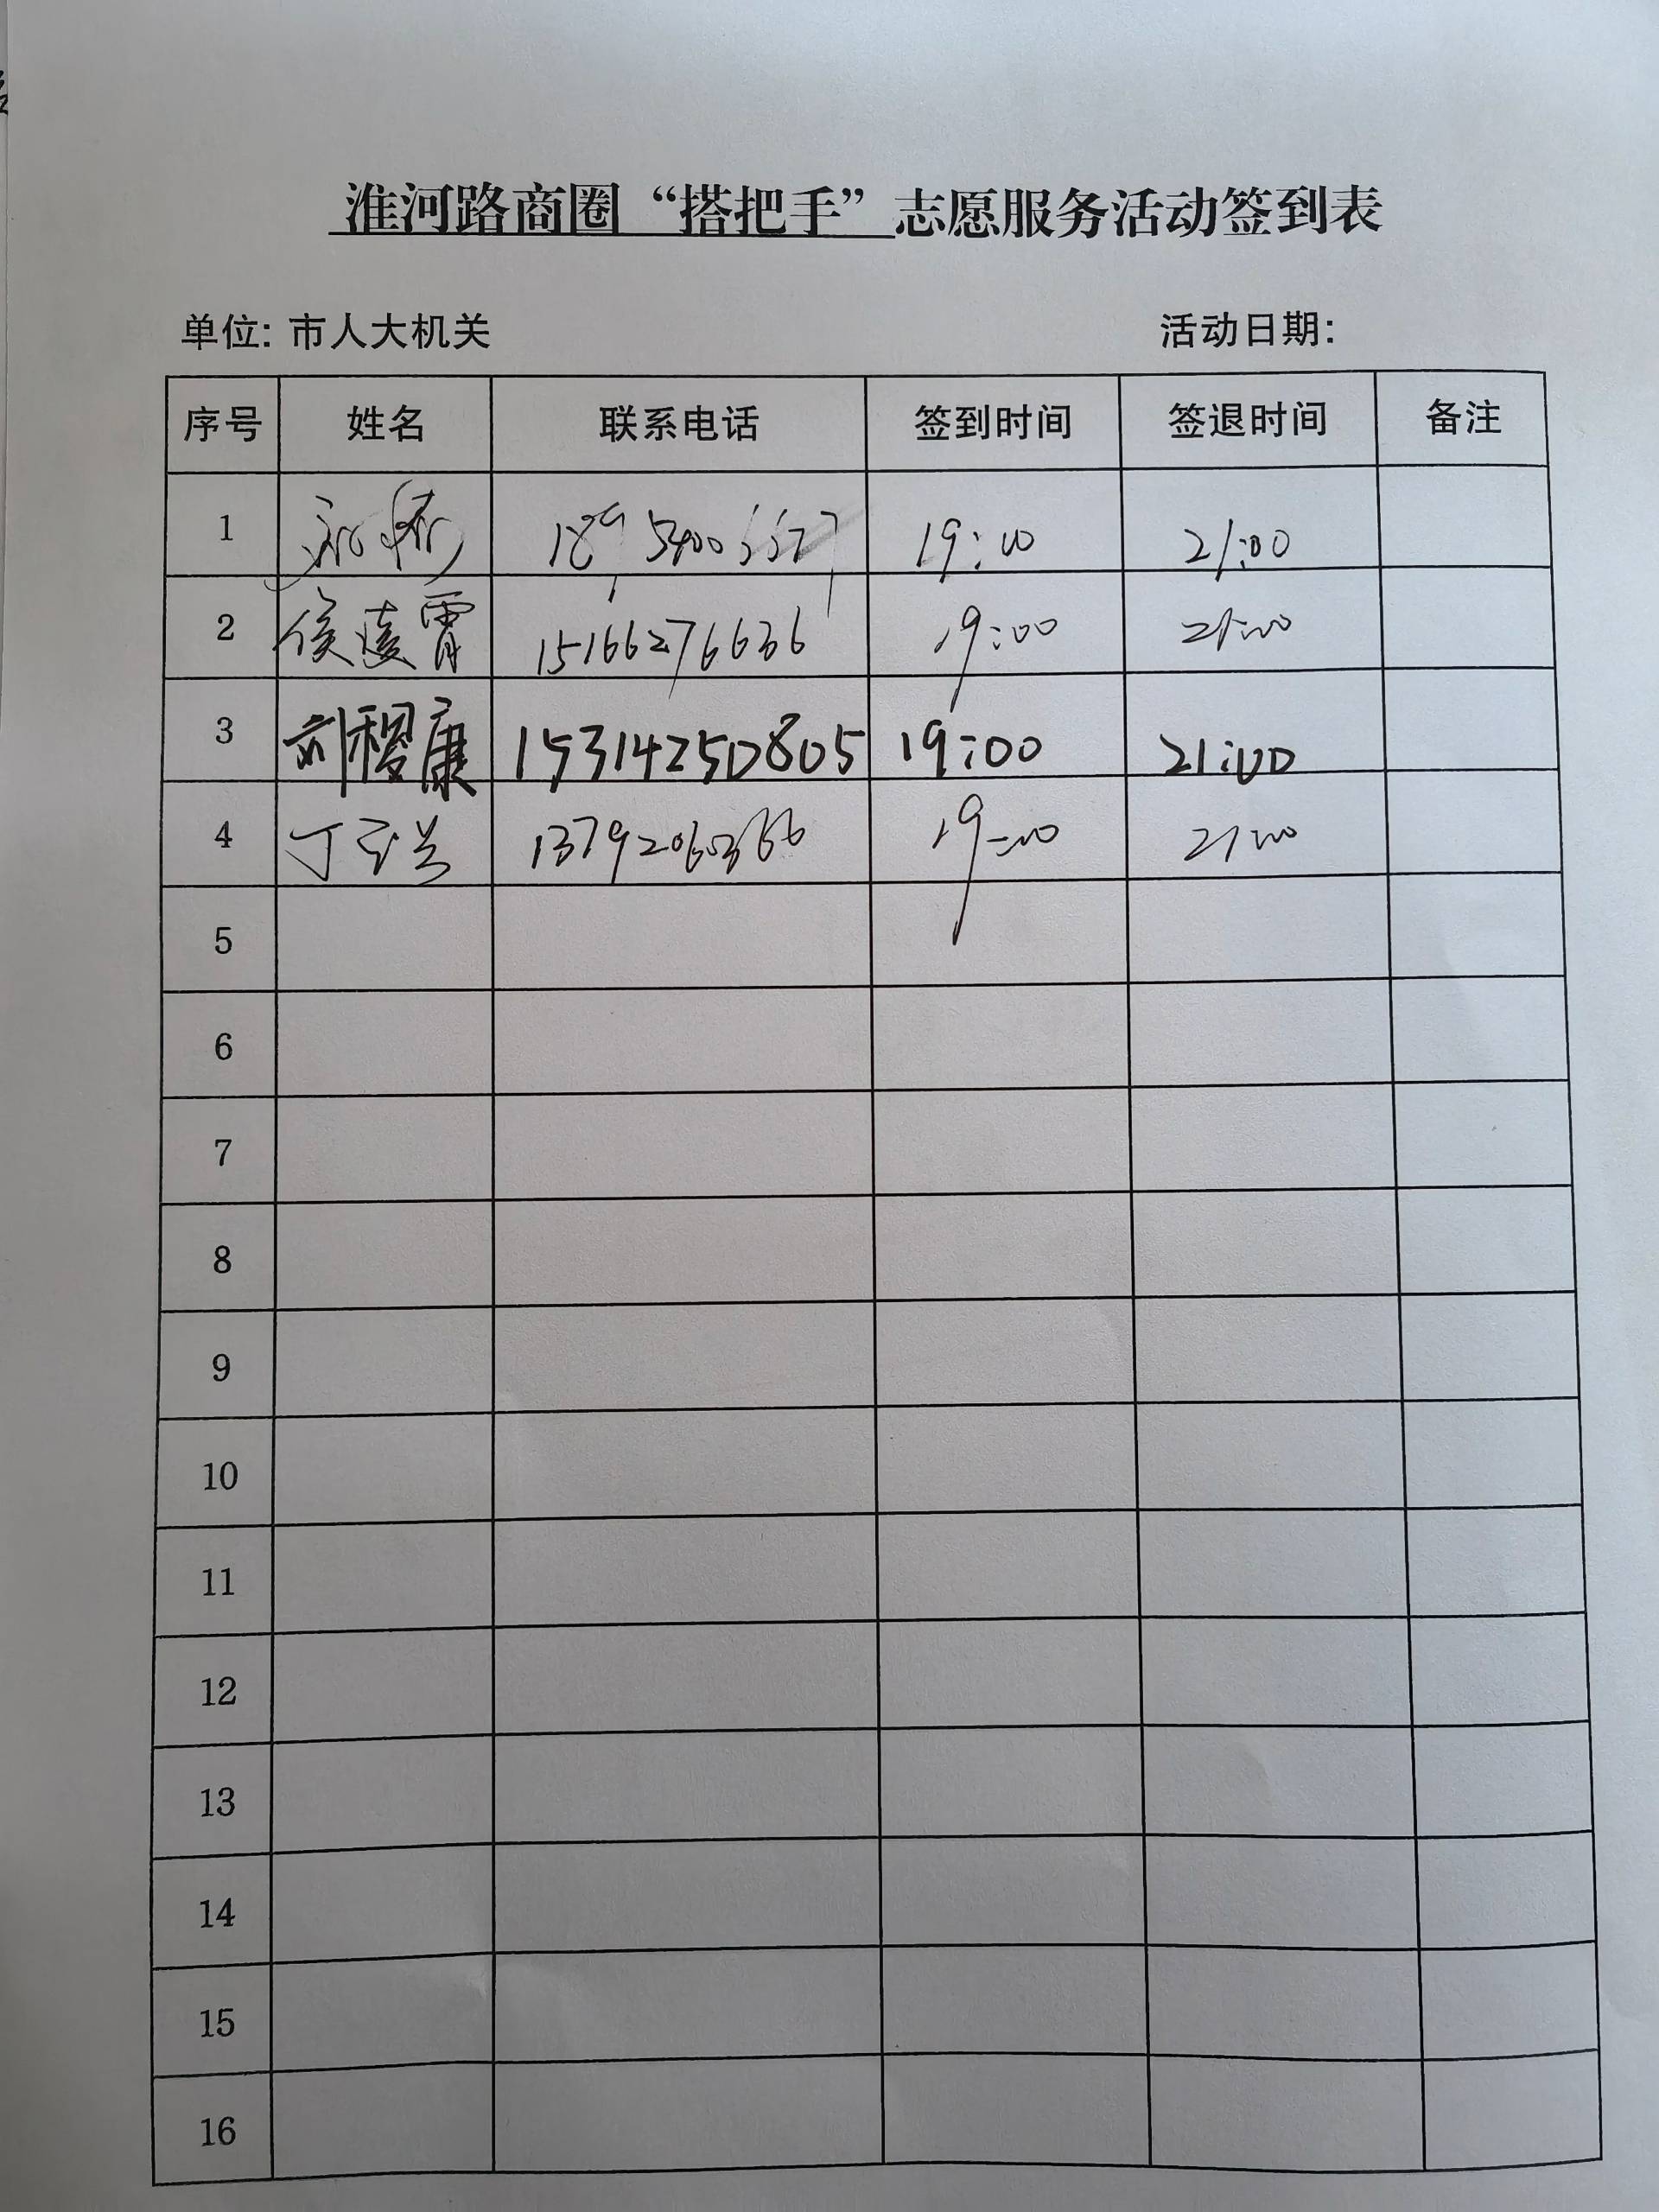 淮河路商圈“搭把手”志愿服务活动签到表
单位: 市人大机关 活动日期:
序号 姓名 联系电话 签到时间 签退时间 备注
1 19:00 21:00
2 侯凌霄 15166276636 19:00 21:00
3 刘稷康 15314250805 19:00 21:00
4 丁 19:00 21:00
5
6
7
8
9
10
11
12
13
14
15
16